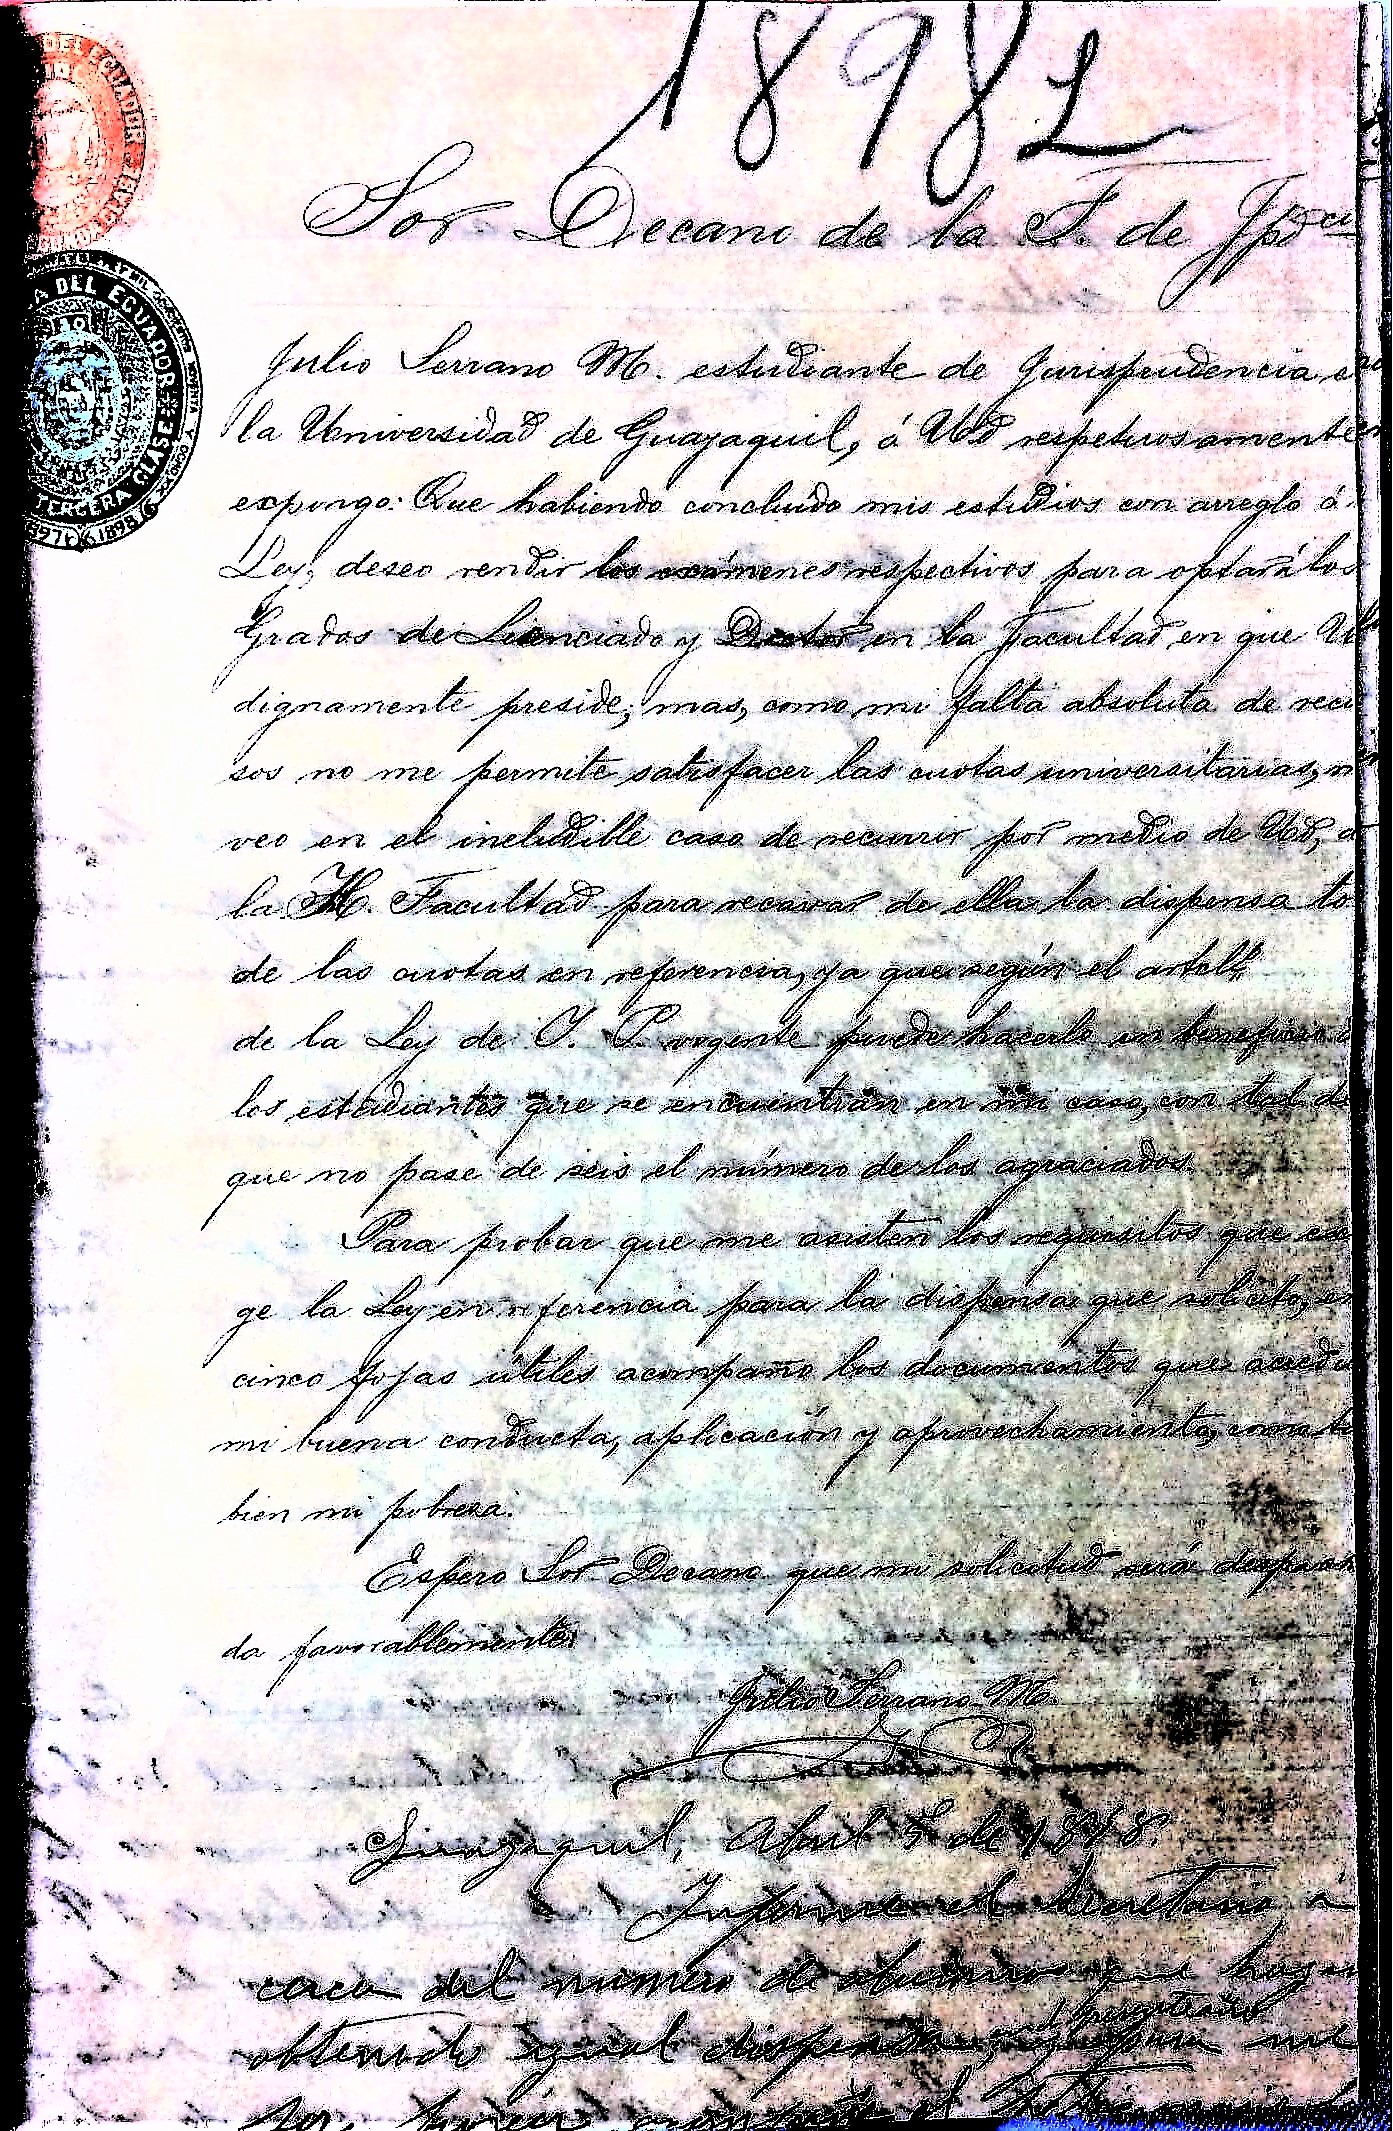 1898
DEL ECUADOR
A DEL ECUADOR
TERCERA CLASE
1897 y 1898
Sor Decano de la F. de Jpdcia
Julio Serrano M. estudiante de Jurisprudencia en
la Universidad de Guayaquil, á Ud respetuosamente
expongo: Que habiendo concluido mis estudios con arreglo á
Ley, deseo rendir los exámenes respectivos para optar á los
Grados de Licenciado y Doctor en la Facultad en que Ud
dignamente preside; mas, como mi falta absoluta de recur
sos no me permite satisfacer las cuotas universitarias, m
veo en el ineludible caso de recurrir por medio de Ud, a
la H. Facultad para recavar de ella la dispensa to
de las cuotas en referencia, ya que según el art
de la Ley de I. P. vigente puede hacerlo en beneficio d
los estudiantes que se encuentran en mi caso, con tal de
que no pase de seis el número de los agraciados.
Para probar que me asisten los requisitos que exi
ge la Ley en referencia para la dispensa que solicito, en
cinco fojas útiles acompaño los documentos que acredi
mi buena conducta, aplicación y aprovechamiento, como ta
bien mi pobreza.
Espero Sor Decano que mi solicitud será despacha
da favorablemente
Julio Serrano M.
Guayaquil, Abril 5 de 1898.
Informe el Secretario á
cerca del número de que hayan
obtenido igual dispensa